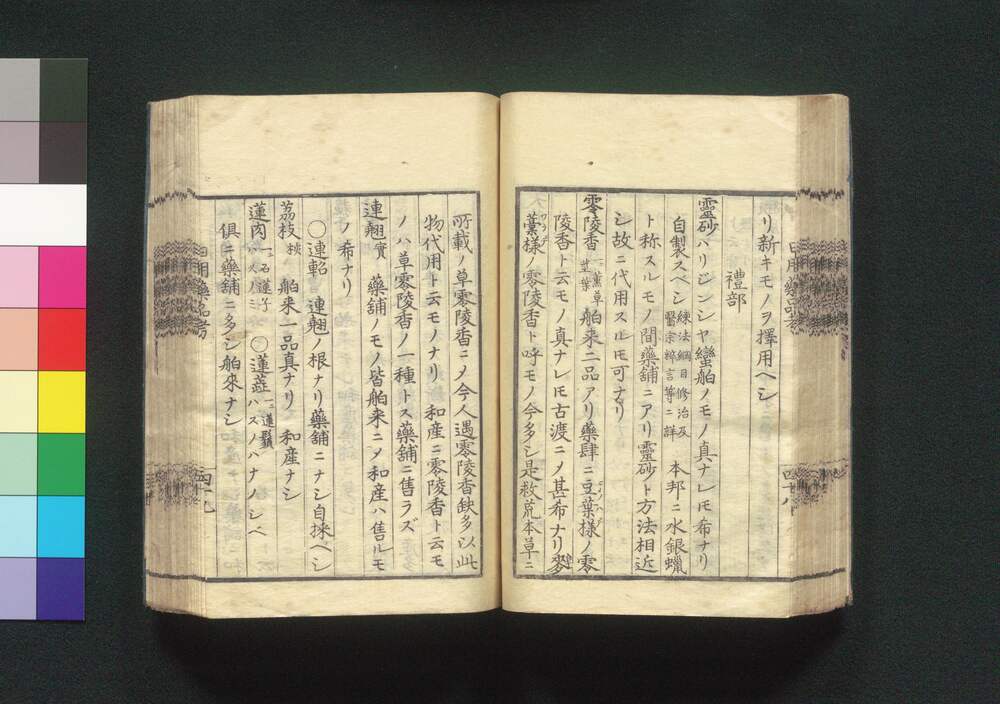 リ新キモノヲ擇用ヘシ
禮部
靈砂ハリジンシヤ蠻舶ノモノ真ナレ𪜈希ナリ
自製スヘシ 練法綱目修治及醫宗粹言等ニ詳 本邦ニ水銀蠟
ト称スルモノ間藥舗ニアリ靈砂ト方法相近
シ故ニ代用スル𪜈可ナリ
零陵香 一薫草 莖葉 舶来二品アリ藥肆ニ豆葉様ノ零
陵香ト云モノ真ナレ𪜈古渡ニ〆甚希ナリ
藁様ノ零陵香ト呼モノ今多シ是救荒本草ニ
所載ノ草零陵香ニ〆今人遇零陵香缺多以此
物代用ト云モノナリ 和産ニ零陵香ト云モ
ノハ草零陵香ノ一種トス藥舗ニ售ラズ
連翹 實 藥舗ノモノ皆舶来ニ〆和産ハ售ルモ
ノ希ナリ
〇連軺 連翹ノ根ナリ藥舗ニナシ自採ヘシ
茘枝 核 舶来一品真ナリ 和産ナシ
蓮肉 一石蓮子 ハスノミ 〇蓮蘂 一蓮鬚 ハスノハナノシベ
俱ニ藥舗ニ多シ舶來ナシ
日用藥品考
四十八
四十九